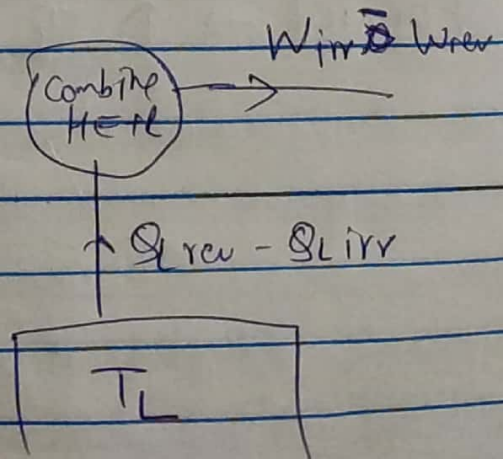 Wirr - Wrev
Combine
HE+R
QL rev - QL irr
TL